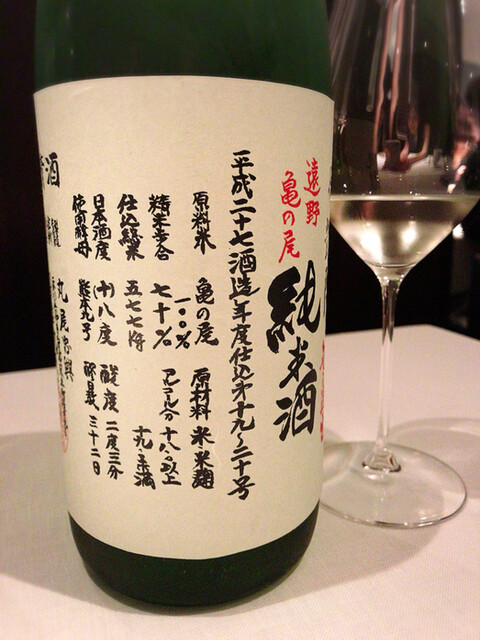 遠野
亀の尾
純米酒
平成二十七酒造年度仕込第十九~二十号
原料米 亀の尾 一〇〇% 原材料 米・米麹
精米歩合 七十% アルコール分 十八以上 十九・未満
仕込総米 五七七瓩
日本酒度 (+)八度 酸度 二度三分
使用酵母 熊本九号 醪日数 三十二日
酒